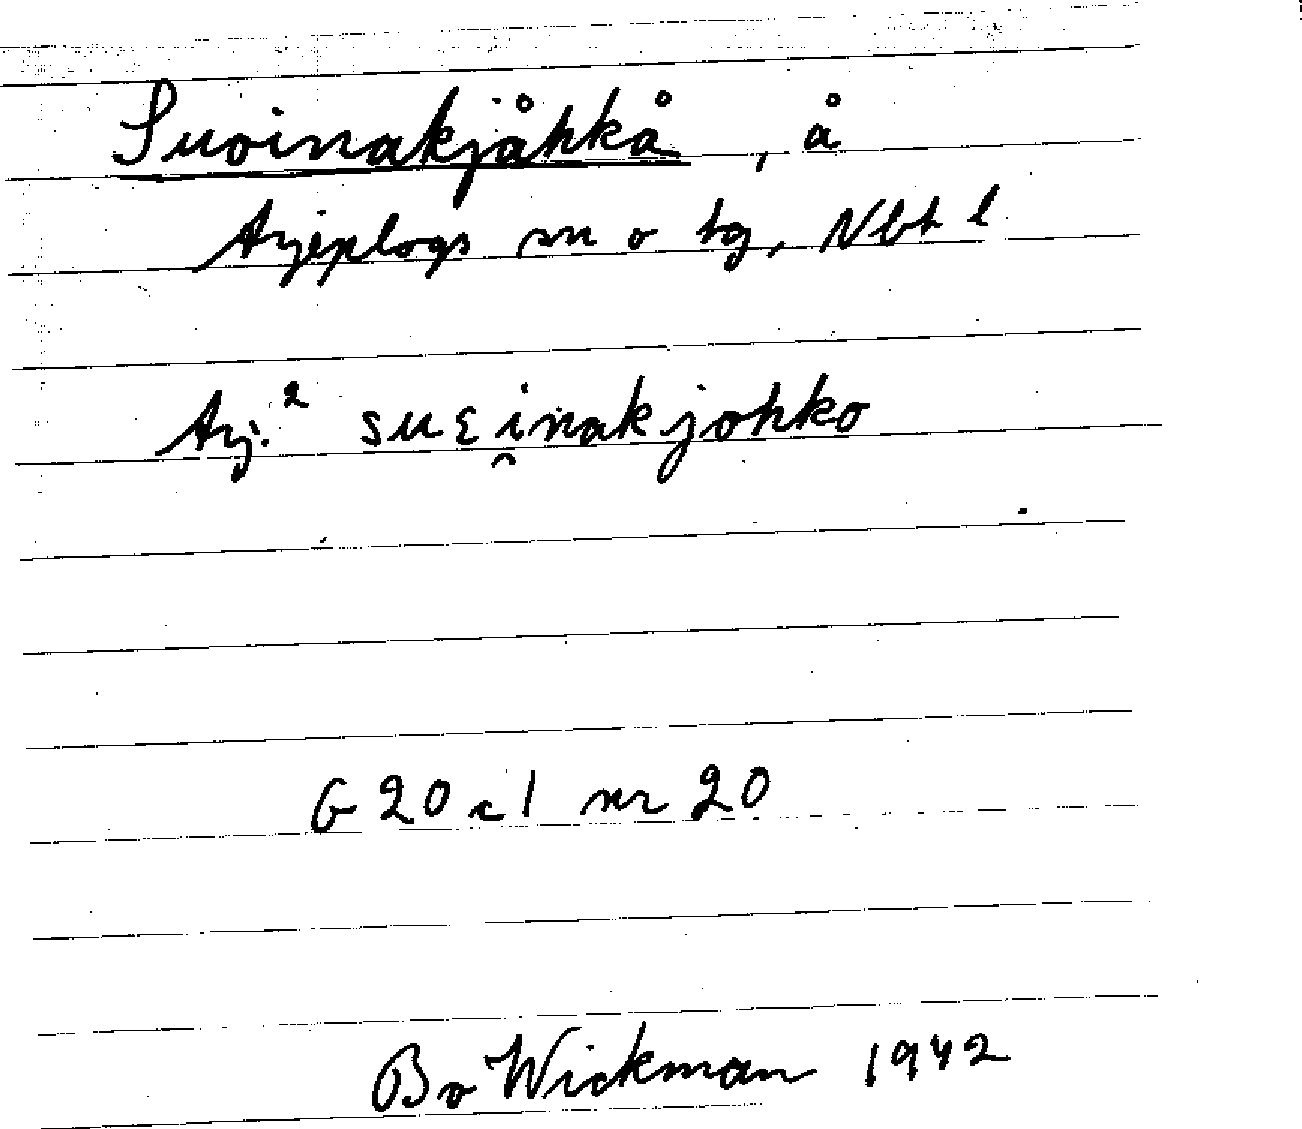 Suoinakjåhkå, å
Arjeplogs sn o tg, Nbt l
Arj.² suɛi̯nakjohko
G 20 c 1 nr 20
Bo Wickman 1942